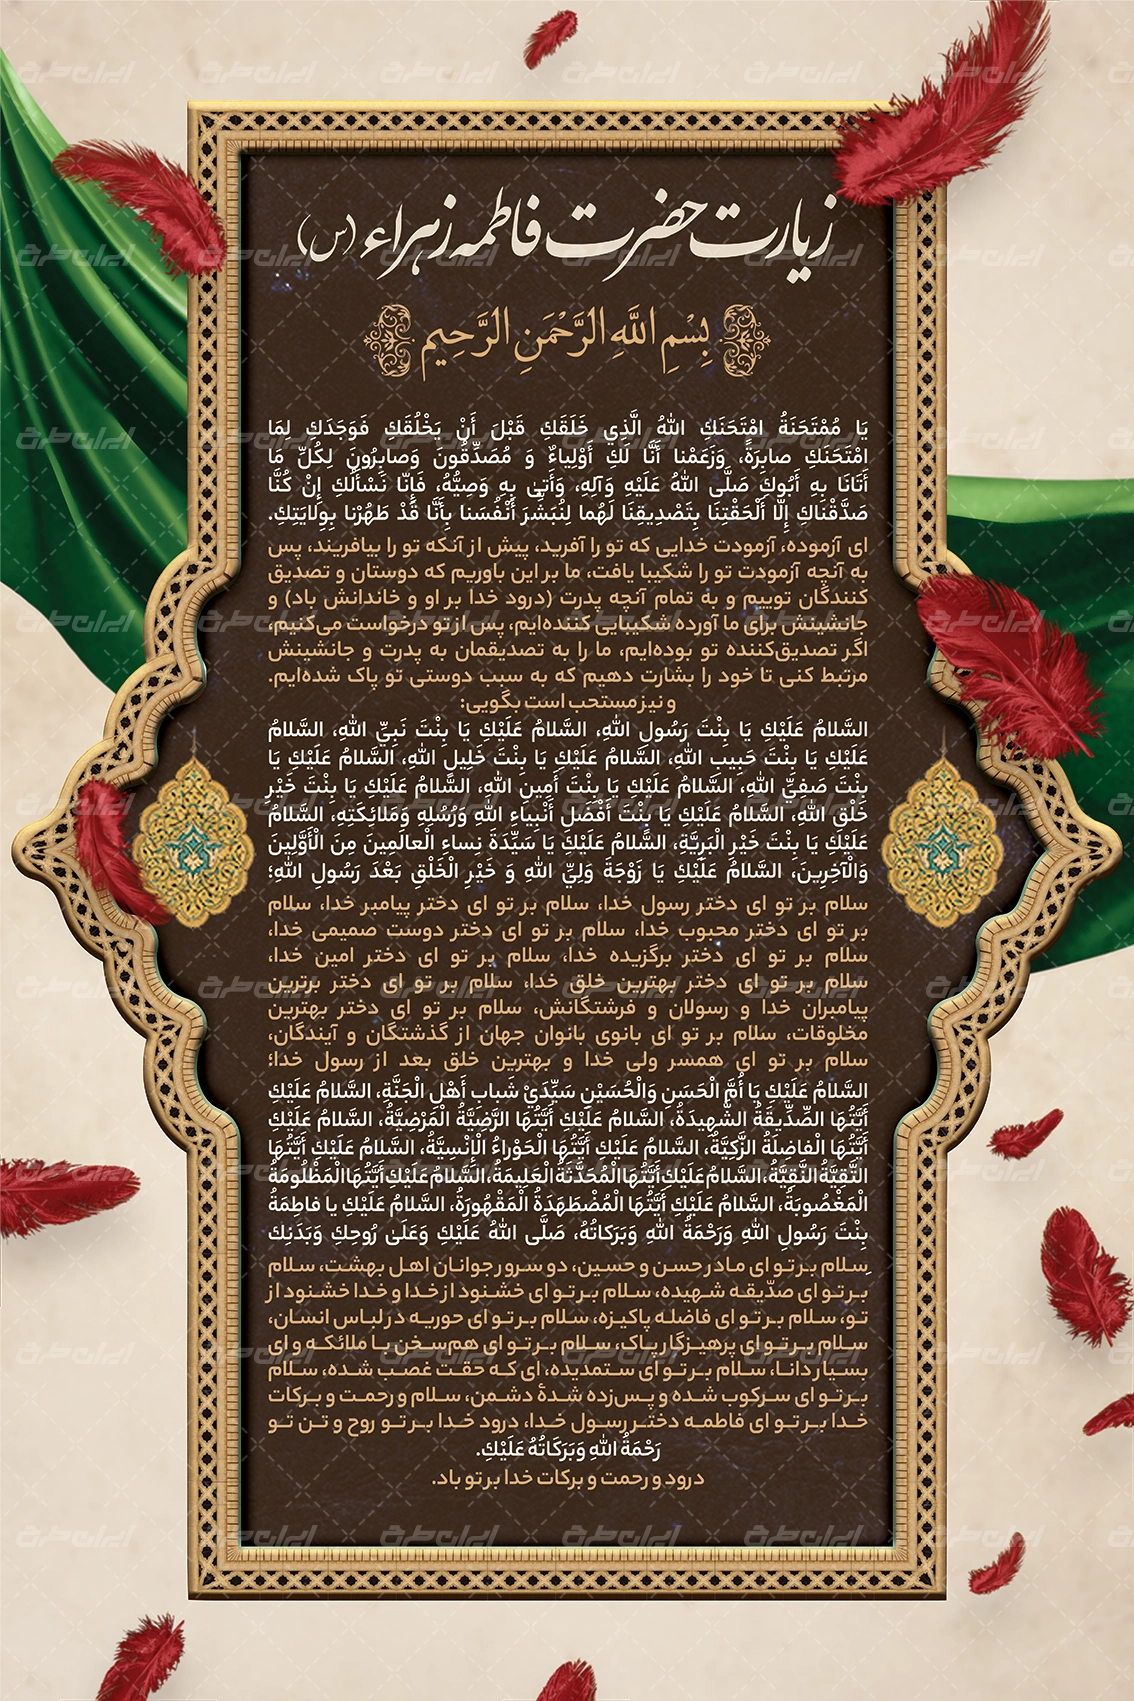 زیارت حضرت فاطمه زهراء (س)
بِسْمِ اللَّهِ الرَّحْمَنِ الرَّحِیمِ
يَا مُمْتَحَنَةُ امْتَحَنَكِ اللهُ الَّذِي خَلَقَكِ قَبْلَ أَنْ يَخْلُقَكِ فَوَجَدَكِ لِمَا
امْتَحَنَكِ صابِرَةً، وَزَعَمْنا أَنَّا لَكِ أَوْلِياءُ وَ مُصَدِّقُونَ وَصابِرُونَ لِكُلِّ مَا
أَتَانَا بِهِ أَبُوكِ صَلَّى اللهُ عَلَيْهِ وَآلِهِ، وَأَتىٰ بِهِ وَصِيُّهُ، فَإِنّا نَسْأَلُكِ إِنْ كُنَّا
صَدَّقْناكِ إِلّا أَلْحَقْتِنا بِتَصْدِيقِنَا لَهُما لِنُبَشِّرَ أَنْفُسَنا بِأَنَّا قَدْ طَهُرْنا بِوِلَايَتِكِ.
ای آزموده، آزمودت خدایی که تو را آفرید، پیش از آنکه تو را بیافریند، پس
به آنچه آزمودت تو را شکیبا یافت، ما بر این باوریم که دوستان و تصدیق
کنندگان توییم و به تمام آنچه پدرت (درود خدا بر او و خاندانش باد) و
جانشینش برای ما آورده شکیبایی کننده‌ایم، پس از تو درخواست می‌کنیم،
اگر تصدیق‌کننده تو بوده‌ایم، ما را به تصدیقمان به پدرت و جانشینش
مرتبط کنی تا خود را بشارت دهیم که به سبب دوستی تو پاک شده‌ایم.
و نیز مستحب است بگویی:
السَّلامُ عَلَيْكِ يَا بِنْتَ رَسُولِ اللهِ، السَّلامُ عَلَيْكِ يَا بِنْتَ نَبِيِّ اللهِ، السَّلامُ
عَلَيْكِ يَا بِنْتَ حَبِيبِ اللهِ، السَّلامُ عَلَيْكِ يَا بِنْتَ خَلِيلِ اللهِ، السَّلامُ عَلَيْكِ يَا
بِنْتَ صَفِيِّ اللهِ، السَّلامُ عَلَيْكِ يَا بِنْتَ أَمِينِ اللهِ، السَّلامُ عَلَيْكِ يَا بِنْتَ خَيْرِ
خَلْقِ اللهِ، السَّلامُ عَلَيْكِ يَا بِنْتَ أَفْضَلِ أَنْبِياءِ اللهِ وَرُسُلِهِ وَمَلائِكَتِهِ، السَّلامُ
عَلَيْكِ يَا بِنْتَ خَيْرِ الْبَرِيَّةِ، السَّلامُ عَلَيْكِ يَا سَيِّدَةَ نِساءِ الْعالَمِينَ مِنَ الْأَوَّلِينَ
وَالْآخِرِينَ، السَّلامُ عَلَيْكِ يَا زَوْجَةَ وَلِيِّ اللهِ وَ خَيْرِ الْخَلْقِ بَعْدَ رَسُولِ اللهِ؛
سلام بر تو ای دختر رسول خدا، سلام بر تو ای دختر پیامبر خدا، سلام
بر تو ای دختر محبوب خدا، سلام بر تو ای دختر دوست صمیمی خدا،
سلام بر تو ای دختر برگزیده خدا، سلام بر تو ای دختر امین خدا،
سلام بر تو ای دختر بهترین خلق خدا، سلام بر تو ای دختر برترین
پیامبران خدا و رسولان و فرشتگانش، سلام بر تو ای دختر بهترین
مخلوقات، سلام بر تو ای بانوی بانوان جهان از گذشتگان و آیندگان،
سلام بر تو ای همسر ولی خدا و بهترین خلق بعد از رسول خدا؛
السَّلامُ عَلَيْكِ يَا أُمَّ الْحَسَنِ وَالْحُسَيْنِ سَيِّدَيْ شَبابِ أَهْلِ الْجَنَّةِ، السَّلامُ عَلَيْكِ
أَيَّتُهَا الصِّدِّيقَةُ الشَّهِيدَةُ، السَّلامُ عَلَيْكِ أَيَّتُهَا الرَّضِيَّةُ الْمَرْضِيَّةُ، السَّلامُ عَلَيْكِ
أَيَّتُهَا الْفاضِلَةُ الزَّكِيَّةُ، السَّلامُ عَلَيْكِ أَيَّتُهَا الْحَوْراءُ الْإِنْسِيَّةُ، السَّلامُ عَلَيْكِ أَيَّتُهَا
التَّقِيَّةُ النَّقِيَّةُ، السَّلامُ عَلَيْكِ أَيَّتُهَا الْمُحَدَّثَةُ الْعَلِيمَةُ، السَّلامُ عَلَيْكِ أَيَّتُهَا الْمَظْلُومَةُ
الْمَغْصُوبَةُ، السَّلامُ عَلَيْكِ أَيَّتُهَا الْمُضْطَهَدَةُ الْمَقْهُورَةُ، السَّلامُ عَلَيْكِ يا فاطِمَةُ
بِنْتَ رَسُولِ اللهِ وَرَحْمَةُ اللهِ وَبَرَكاتُهُ، صَلَّى اللهُ عَلَيْكِ وَعَلىٰ رُوحِكِ وَبَدَنِكِ
سلام بر تو ای مادر حسن و حسین، دو سرور جوانان اهل بهشت، سلام
بر تو ای صدّیقه شهیده، سلام بر تو ای خشنود از خدا و خدا خشنود از
تو، سلام بر تو ای فاضله پاکیزه، سلام بر تو ای حوریه در لباس انسان،
سلام بر تو ای پرهیزگار پاک، سلام بر تو ای هم‌سخن با ملائکه و ای
بسیار دانا، سلام بر تو ای ستمدیده، ای که حقت غصب شده، سلام
بر تو ای سرکوب شده و پس‌زده شدهٔ دشمن، سلام و رحمت و برکات
خدا بر تو ای فاطمه دختر رسول خدا، درود خدا بر تو روح و تن تو
رَحْمَةُ اللهِ وَبَرَكَاتُهُ عَلَيْكِ.
درود و رحمت و برکات خدا بر تو باد.